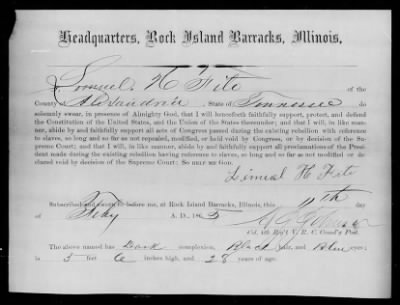 Headquarters, Rock Island Barracks, Illinois,
I Lemuel H Fite of the
County of Alexandria, State of Tennessee do
solemnly swear, in presence of Almighty God, that I will henceforth faithfully support, protect, and defend
the Constitution of the United States, and the Union of the States thereunder; and that I will, in like man-
ner, abide by and faithfully support all acts of Congress passed during the existing rebellion with reference
to slaves, so long and so far as not repealed, modified, or held void by Congress, or by decision of the Su-
preme Court; and that I will, in like manner, abide by and faithfully support all proclamations of the Pres-
ident made during the existing rebellion having reference to slaves, so long and so far as not modified or de-
clared void by decision of the Supreme Court: So HELP ME GOD.
Lemeul H Fite
Subscribed and sworn to before me, at Rock Island Barracks, Illinois, this 11th day
of Feby A. D. 1865
Col. 4th Reg't V. R. C. Comd'g Post.
The above named has Dark complexion, Black hair, and Blue eyes;
is 5 feet 6 inches high, and 28 years of age.